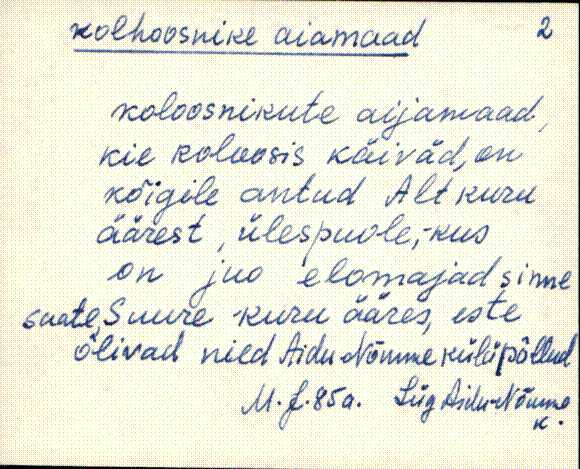 kolhoosnike aiamaad 2
koloosnikute aijamaad,
kie koloosis käiväd, on
kõigile antud Altkuru
äärest, ülespuole, kus
on juo elomajad sinne
suate, Suure kuru ääres, este
õlivad nied Aidu-Nõmme külä põllud
M. J. 85a. Lüg Aidu-Nõmme
k.